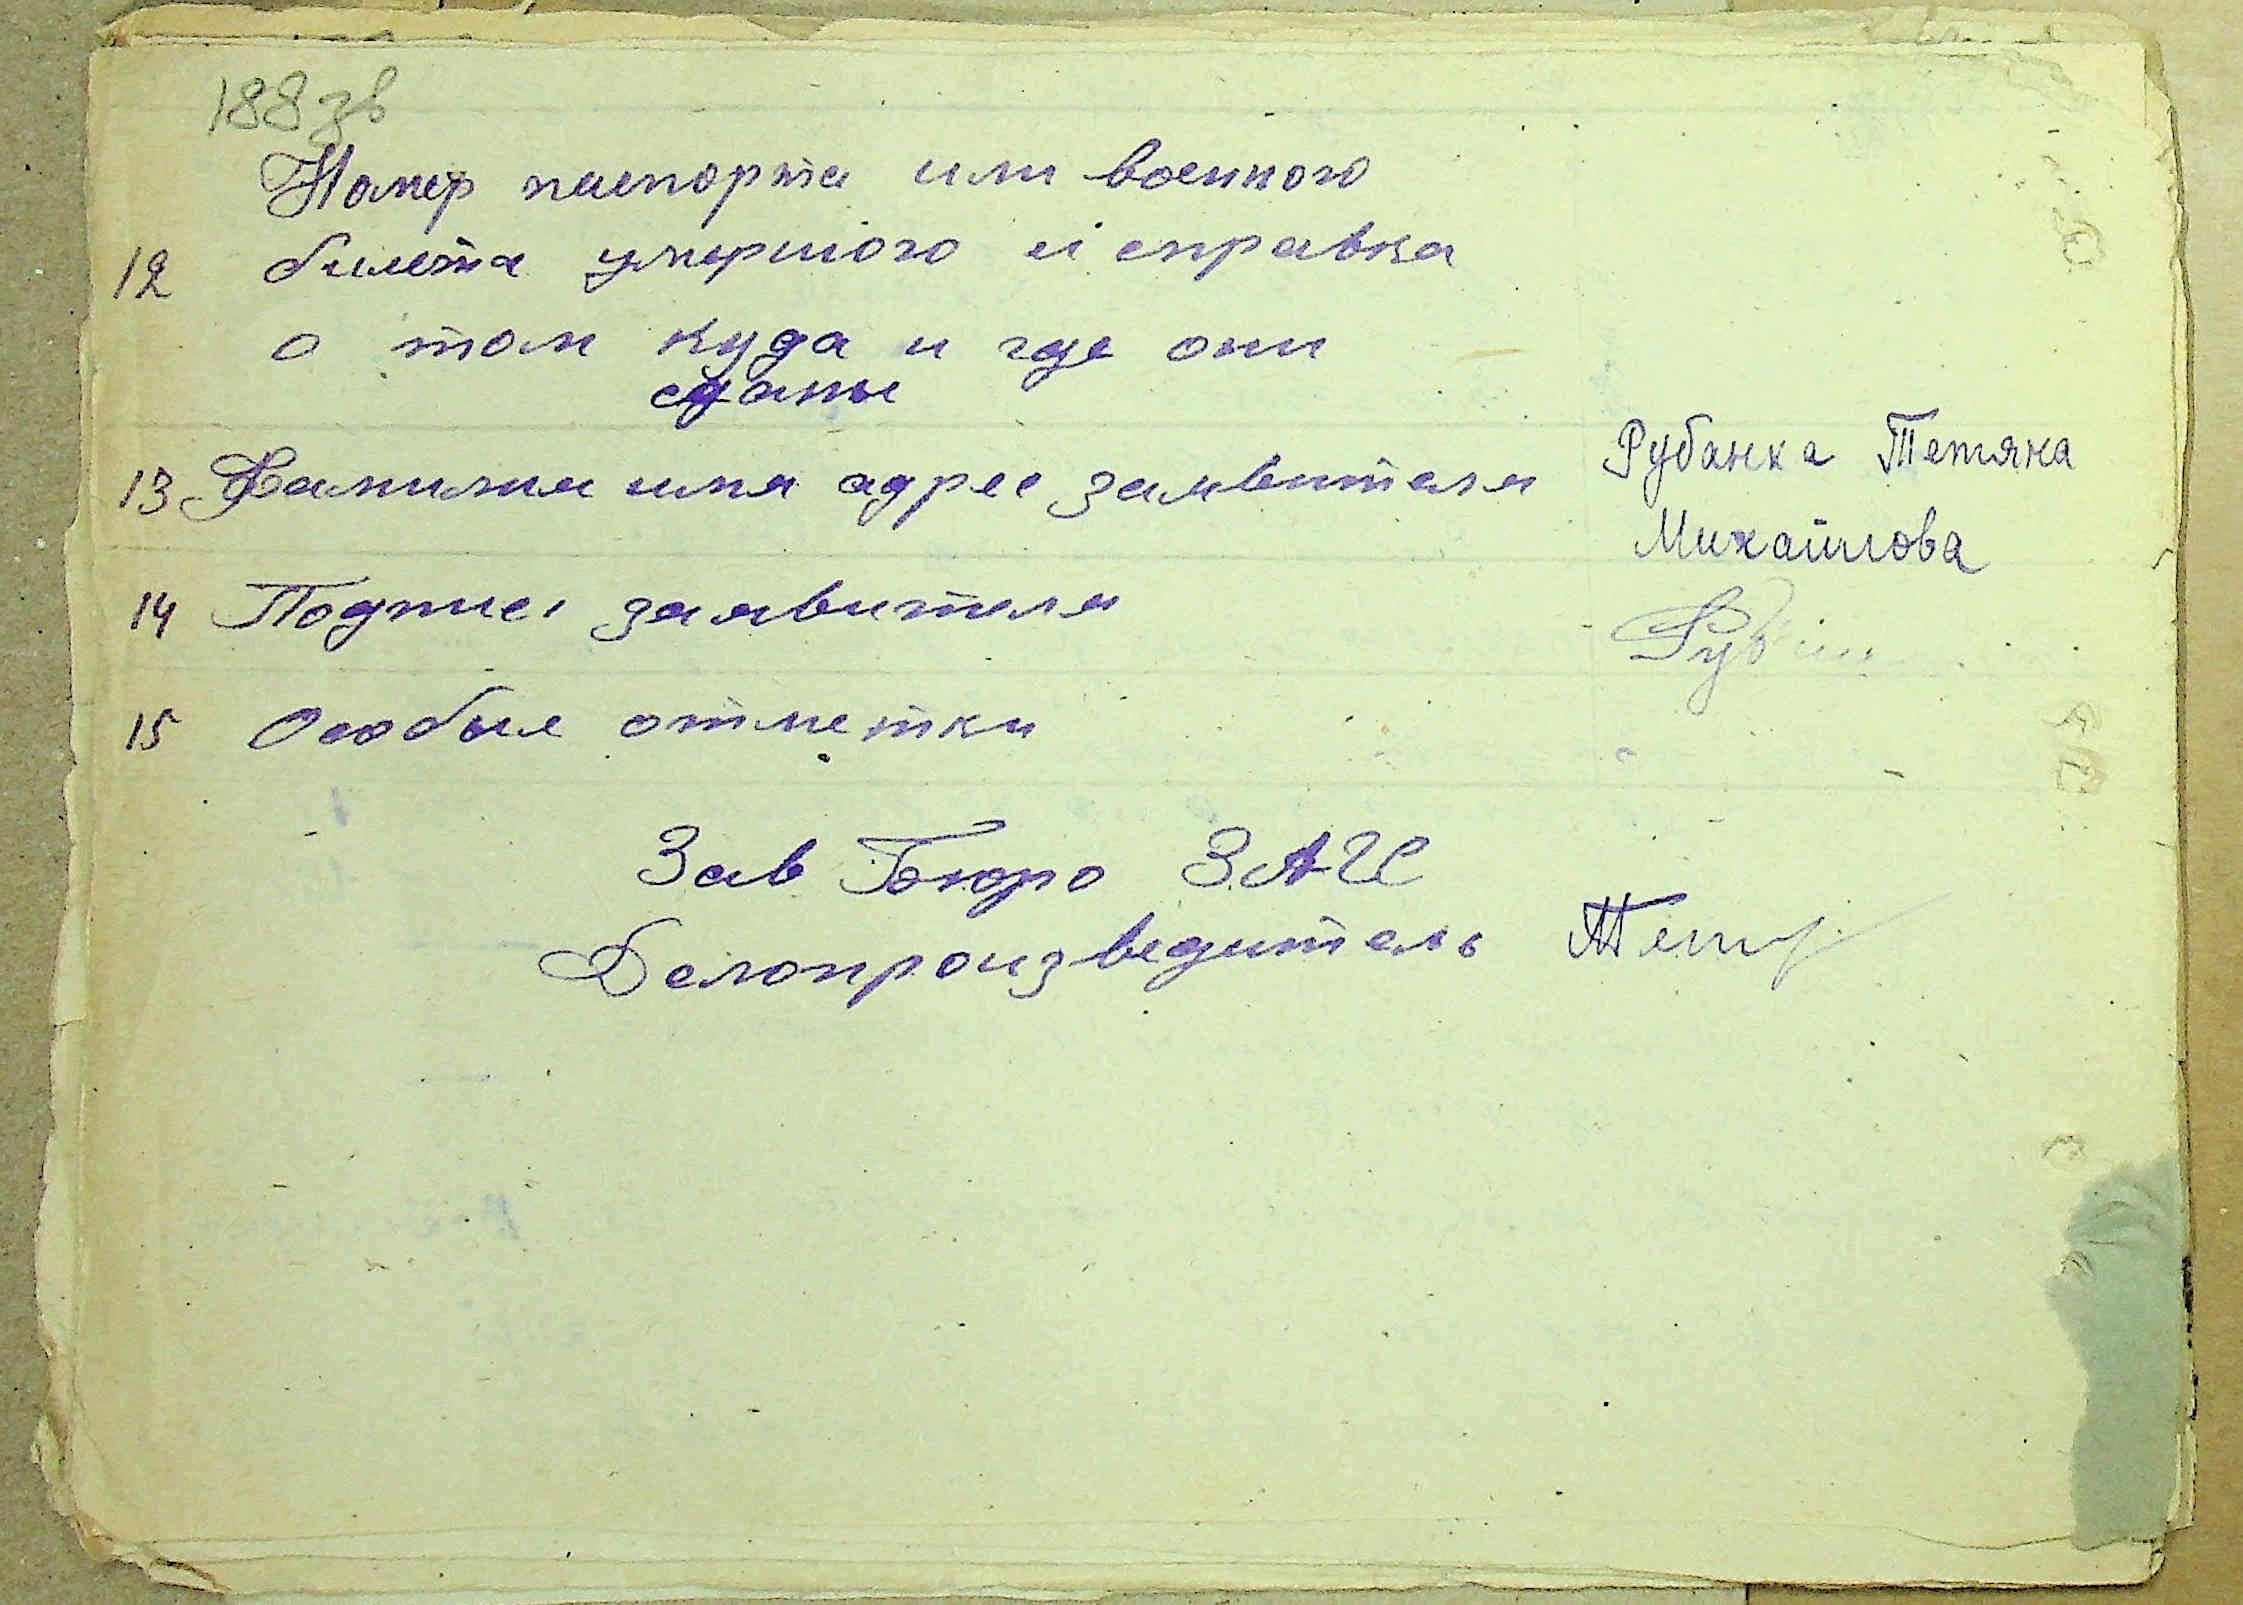 188 зв
Номер паспорта или военного
12 билета умершого и справка
о том куда и где они
сданы
13 Фамилия имя адрес заявителя Рубанка Тетяна
Михайлова
14 Подпись заявителя Руб
15 Особые отметки
Зав Бюро ЗАГС
Делопроизводитель